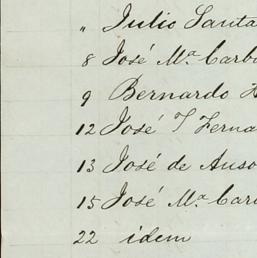 " Julio Santa
8 José Mª Carb
9 Bernardo H
12 José T Ferna
13 José de Anso
15 José Mª Car
22 idem